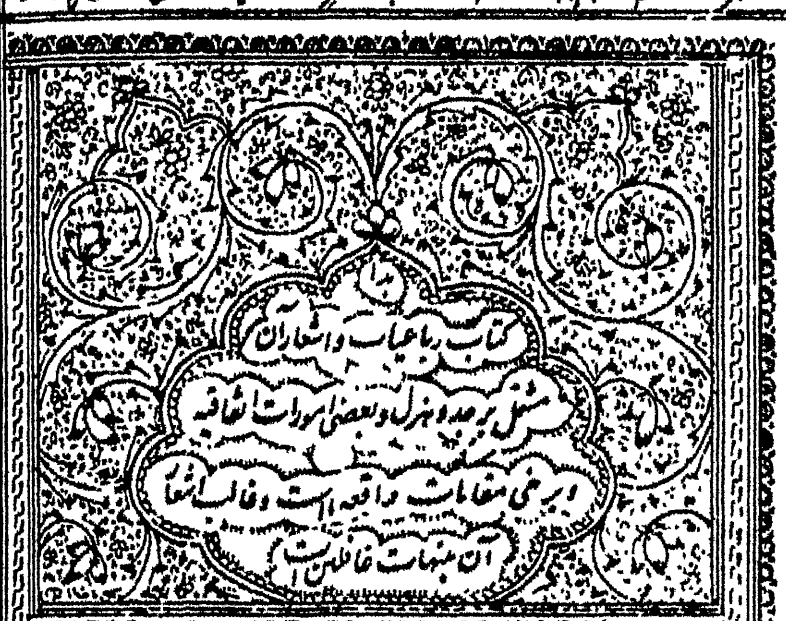 هذا
کتاب رباعیات و اشعار آن
مشتمل بر جد و هزل و بعضی امورات اتفاقیه
و برخی مقامات واقعه است و غالب اشعار
آن منبهات غافلین است